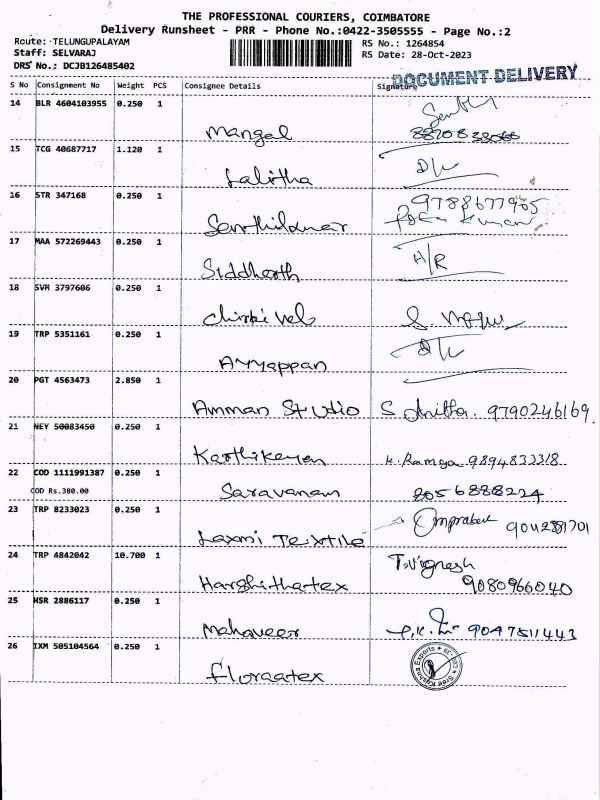 THE PROFESSIONAL COURIERS, COIMBATORE
Delivery Runsheet - PRR - Phone No.:0422-3505555 - Page No.:2
Route: TELUNGUPALAYAM
RS No.: 1264854
Staff: SELVARAJ
RS Date: 28-Oct-2023
DRS No.: DCJB126485402
DOCUMENT DELIVERY
S No Consignment No Weight PCS Consignee Details Signature
14 BLR 4604103955 0.250 1
Mangal
15 TCG 40687717 1.120 1
Lalitha D/L
16 STR 347168 0.250 1 9788677905
Senthilkumar Kumar
17 MAA 572269443 0.250 1
Siddharth H/R
18 SVM 3797606 0.250 1
19 TRP 5351161 0.250 1
Ayyappan D/L
20 PGT 4563473 2.850 1
Amman Studio 9790246169
21 NEY 50083450 0.250 1
Karthikeyan K. Ramya 9894833318
22 COD 1111991387 0.250 1
COD Rs.380.00 Saravanam 8056888224
23 TRP 8233023 0.250 1
Laxmi Textile
24 TRP 4842042 10.700 1 T.Vignesh
Harshithatex 9080966040
25 HSR 2886117 0.250 1
Mahaveer 9047511443
26 IXM 505104564 0.250 1
Floraatex